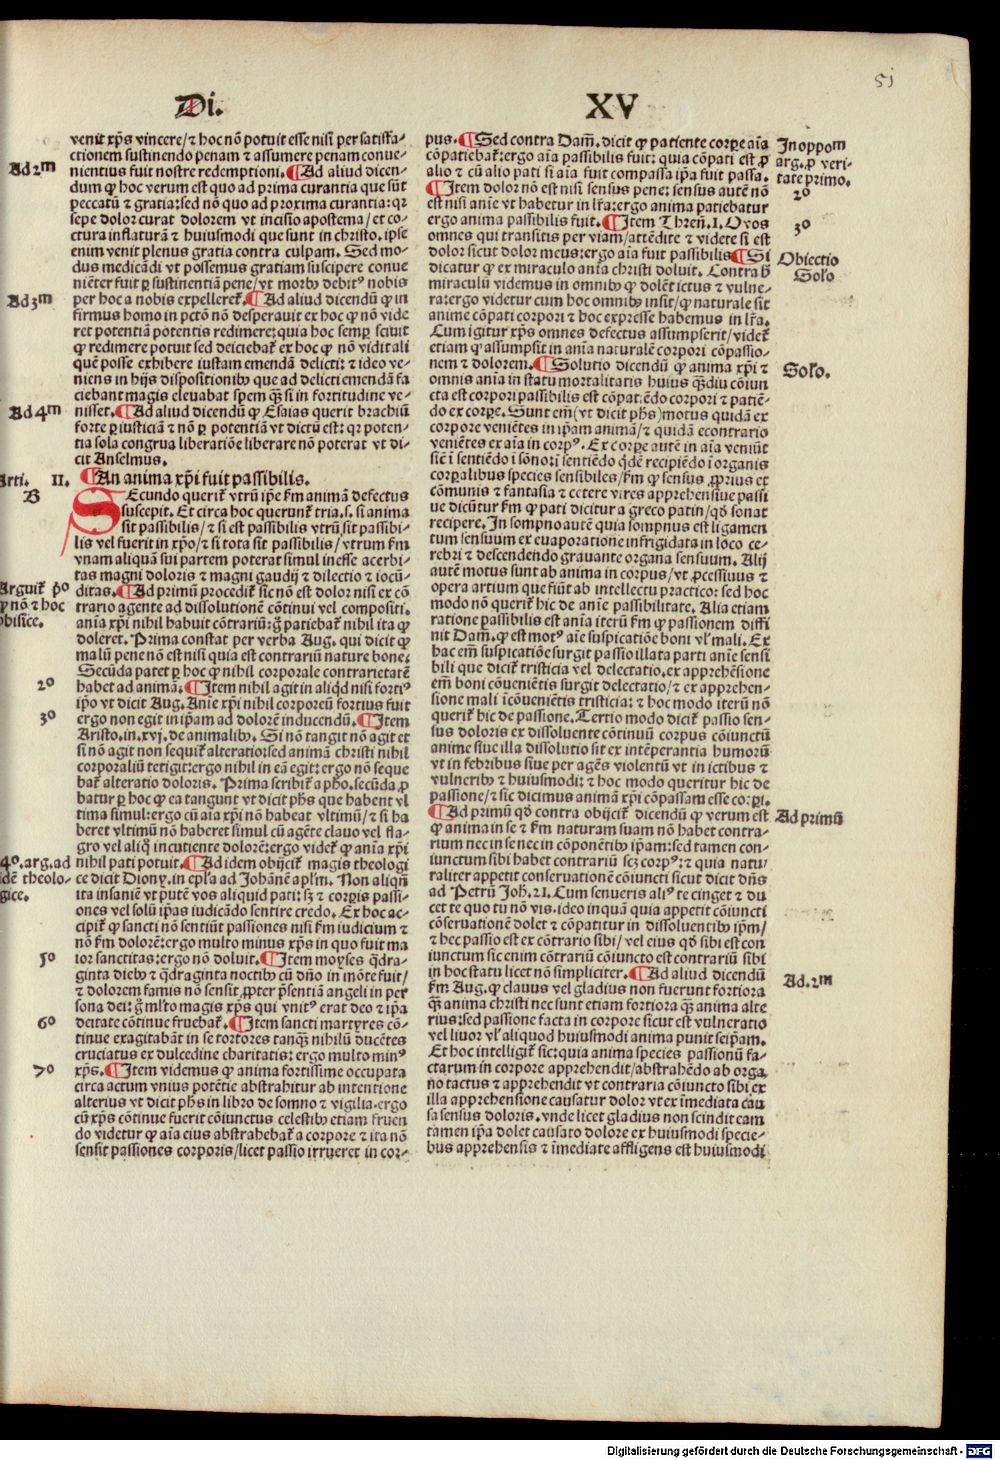 51
Di.
XV
venit xp̄s vincere/⁊ hoc nō potuit esse nisi per satisfa⸗
ctionem sustinendo penam ⁊ assumere penam conue⸗
Ad 2m
nientius fuit nostre redemptioni. ¶ Ad aliud dicen⸗
dum ꝙ hoc verum est quo ad prima curantia que sūt
peccatū ⁊ gratia: sed nō quo ad proxima curantia: qr
sepe dolor curat dolorem vt incisio apostema/ et co⸗
ctura inflaturā ⁊ huiusmodi que sunt in christo. ipse
enim venit plenus gratia contra culpam. Sed mo⸗
dus medicādi vt possemus gratiam suscipere conue
niēter fuit ꝑ sustinentiam pene/vt morbꝰ debitꝰ nobis
Ad 3m
per hoc a nobis expelleret᷑. ¶ Ad aliud dicendū ꝙ in
firmus homo in pctō nō desperauit ex hoc ꝙ nō vide
ret potentiā potentis redimere: quia hoc semꝑ sciuit
ꝙ redimere potuit sed deiciebat᷑ ex hoc ꝙ nō vidit ali
quē posse exhibere iustam emendā delicti: ⁊ ideo ve⸗
niens in hijs dispositionibꝰ que ad delicti emendā fa
ciebant magis eleuabat spem q̄ꝫ si in fortitudine ve⸗
Ad 4m
nisset. ¶ Ad aliud dicendū ꝙ Esaias querit brachiū
forte ꝑ iusticiā ⁊ nō ꝑ potentiā vt dictū est: qr poten⸗
tia sola congrua liberatiōe liberare nō poterat vt di⸗
cit Anselmus.
Arti. II.
¶ An anima xp̄i fuit passibilis.
B
Secundo querit᷑ vtrū ip̄e ẜm animā defectus
suscepit. Et circa hoc querunt᷑ tria. s. si anima
sit passibilis/⁊ si est passibilis vtrū sit passibi⸗
lis vel fuerit in xp̄o/⁊ si tota sit passibilis/vtrum ẜm
vnam aliquā sui partem poterat simul inesse acerbi⸗
tas magni doloris ⁊ magni gaudij ⁊ dilectio ⁊ iocū⸗
Arguit᷑ pº
ditas. ¶ Ad primū procedit᷑ sic nō est dolor nisi ex cō
ꝙ nō ⁊ hoc
trario agente ad dissolutionē cōtinui vel compositi.
phisice.
anīa xp̄i nihil habuit cōtrariū: g̊ patiebat᷑ nihil ita ꝙ
doleret. Prima constat per verba Aug. qui dicit ꝙ
malū pene nō est nisi quia est contrariū nature bone.
Secūda patet ꝑ hoc ꝙ nihil corporale contrarietatē
2º
habet ad animā. ¶ Item nihil agit in aliqd nisi fortiꝰ
ip̄o vt dicit Aug. Anie xp̄i nihil corporeū fortius fuit
3º
ergo non egit in ip̄am ad dolorē inducendū. ¶ Item
Aristo. in. xvj. de animalibꝰ. Si nō tangit nō agit et
si nō agit non sequit᷑ alteratio: sed animā christi nihil
corporaliū tetigit: ergo nihil in eā egit: ergo nō seque
bat᷑ alteratio doloris. Prima scribit᷑ a pho. secūda ꝓ
batur ꝑ hoc ꝙ ea tangunt vt dicit phs que habent vl
tima simul: ergo cū aīa xp̄i nō habeat vltimū/⁊ si ha
beret vltimū nō haberet simul cū agēte clauo vel fla⸗
gro vel aliq̊ incutiente dolorē: ergo videt᷑ ꝙ anīa xp̄i
4º. arg. ad
nihil pati potuit. ¶ Ad idem obijcit᷑ magis theologi
idē theolo⸗
ce dicit Diony. in ep̄la ad Johānē ap̄lm. Non aliqn̄
gice.
ita insaniē vt putē vos aliquid pati: sꝫ ⁊ corꝑis passi⸗
ones vel solū ip̄as iudicādo sentire credo. Ex hoc ac⸗
cipit᷑ ꝙ sancti nō sentiūt passiones nisi ẜm iudicium ⁊
nō ẜm dolorē: ergo multo minus xp̄s in quo fuit ma
5º
ior sanctitas: ergo nō doluit. ¶ Item moyses q̄dra⸗
ginta diebꝰ ⁊ q̄draginta noctibꝰ cū dn̄o in mōte fuit/
⁊ dolorem famis nō sensit, ꝓpter p̄sentiā angeli in per
sona dei: g̊ ml̄to magis xp̄s qui vnitꝰ erat deo ⁊ ip̄a
6º
deitate cōtinue fruebat᷑. ¶ Item sancti martyres cō⸗
tinue exagitabāt in se tortores tanqꝫ nihilū ducētes
cruciatus ex dulcedine charitatis: ergo multo minꝰ
7º
xp̄s. ¶ Item videmus ꝙ anima fortissime occupata
circa actum vnius potētie abstrahitur ab intentione
alterius vt dicit phs in libro de somno ⁊ vigilia. ergo
cū xp̄s cōtinue fuerit cōiunctus celestibꝰ etiam fruen
do videtur ꝙ aīa eius abstrahebat᷑ a corpore ⁊ ita nō
sensit passiones corporis/licet passio irrueret in cor⸗
pus. ¶ Sed contra Dam̄. dicit ꝙ patiente corꝑe aīa
In oppom
cōpatiebat᷑: ergo aīa passibilis fuit: quia cōpati est ꝓ
arg. ꝓ veri⸗
alio ⁊ cū alio pati si aīa fuit compassa ip̄a fuit passa.
tate primo.
¶ Item dolor nō est nisi sensus pene: sensus autē nō
2º
est nisi anīe vt habetur in lr̄a: ergo anima patiebatur
ergo anima passibilis fuit. ¶ Item Thren̄. 1. O vos
3º
omnes qui transitis per viam/attēdite ⁊ videte si est
dolor sicut dolor meus: ergo aīa fuit passibilis ¶ Si
Obiectio
dicatur ꝙ ex miraculo anīa christi doluit. Contra h̄
Solo
miraculū videmus in omnibꝰ ꝙ dolēt ictus ⁊ vulne⸗
ra: ergo videtur cum hoc omnibꝰ insit/ꝙ naturale sit
anime cōpati corpori ⁊ hoc expresse habemus in lr̄a.
Cum igitur xp̄s omnes defectus assumpserit/videt᷑
etiam ꝙ assumpsit in anīa naturalē corpori cōpassio⸗
nem ⁊ dolorem. ¶ Solutio dicendū ꝙ anima xp̄i ⁊
Solo.
omnis anīa in statu mortalitatis huius q̄ꝫdiu cōiun
cta est corpori passibilis est cōpatiēdo corpori ⁊ patiē⸗
do ex corꝑe. Sunt em̄ (vt dicit phs) motus quidā ex
corpore veniētes in ip̄am animā/⁊ quidā econtrario
veniētes ex aīa in corpꝰ. Ex corꝑe autē in aīa veniūt
sic̄ ī sentiēdo ī sono: ī sentiēdo q̄dē recipiēdo ī organis
corꝑalibus species sensibiles/ẜm ꝙ sensus, ꝓprius et
cōmunis ⁊ fantasia ⁊ cetere vires apprehensiue passi
ue dicūtur ẜm ꝙ pati dicitur a greco patin/qđ sonat
recipere. In sompno autē quia sompnus est ligamen
tum sensuum ex euaporatione infrigidata in loco ce⸗
rebri ⁊ descendendo grauante organa sensuum. Alij
autē motus sunt ab anima in corpus/vt ꝓcessiuus ⁊
opera artium que fiūt ab intellectu practico: sed hoc
modo nō querit᷑ hic de anīe passibilitate. Alia etiam
ratione passibilis est anīa iterū ẜm ꝙ passionem diffi
nit Dam̄. ꝙ est motꝰ aīe suspicatiōe boni vl̓ mali. Ex
hac em̄ suspicatiōe surgit passio illata parti anīe sensi
bili que dicit᷑ tristicia vel delectatio. ex apprehēsione
em̄ boni cōueniētis surgit delectatio/⁊ ex apprehen⸗
sione mali īcōueniētis tristicia: ⁊ hoc modo iterū nō
querit᷑ hic de passione. Tertio modo dicit᷑ passio sen⸗
sus doloris ex dissoluente cōtinuū corpus cōiunctū
anime siue illa dissolutio sit ex intēperantia humorū
vt in febribus siue per agēs violentū vt in ictibus ⁊
vulneribꝰ ⁊ huiusmodi: ⁊ hoc modo queritur hic de
passione/⁊ sic dicimus animā xp̄i cōpassam esse corꝑi.
¶ Ad primū qđ contra obijcit᷑ dicendū ꝙ verum est
Ad primū
ꝙ anima in se ⁊ ẜm naturam suam nō habet contra⸗
rium nec in se nec in cōponētibꝰ ip̄am: sed tamen con⸗
iunctum sibi habet contrariū scꝫ corpꝰ: ⁊ quia natu⸗
raliter appetit conseruationē cōiuncti sicut dicit dn̄s
ad Petrū Joh̄. 21. Cum senueris aliꝰ te cinget ⁊ du
cet te quo tu nō vis. ideo inquā quia appetit cōiuncti
cōseruationē dolet ⁊ cōpatitur in dissoluentibꝰ ip̄m/
⁊ hec passio est ex cōtrario sibi/vel eius qđ sibi est con
iunctum sic enim cōtrariū cōiuncto est contrariū sibi
in hoc statu licet nō simpliciter. ¶ Ad aliud dicendū
Ad. 2m
ẜm Aug. ꝙ clauus vel gladius non fuerunt fortiora
q̄ꝫ anima christi nec sunt etiam fortiora q̄ꝫ anima alte
rius: sed passione facta in corpore sicut est vulneratio
vel liuor vl̓ aliquod huiusmodi anima punit seip̄am.
Et hoc intelligit᷑ sic: quia anima species passionū fa⸗
ctarum in corpore apprehendit/abstrahēdo ab orga
no tactus ⁊ apprehendit vt contraria cōiuncto sibi ex
illa apprehensione causatur dolor vt ex īmediata cau
sa sensus doloris. vnde licet gladius non scindit eam
tamen ip̄a dolet causato dolore ex huiusmodi specie⸗
bus apprehensis ⁊ īmediate affligens est huiusmodi
Digitalisierung gefördert durch die Deutsche Forschungsgemeinschaft - DFG